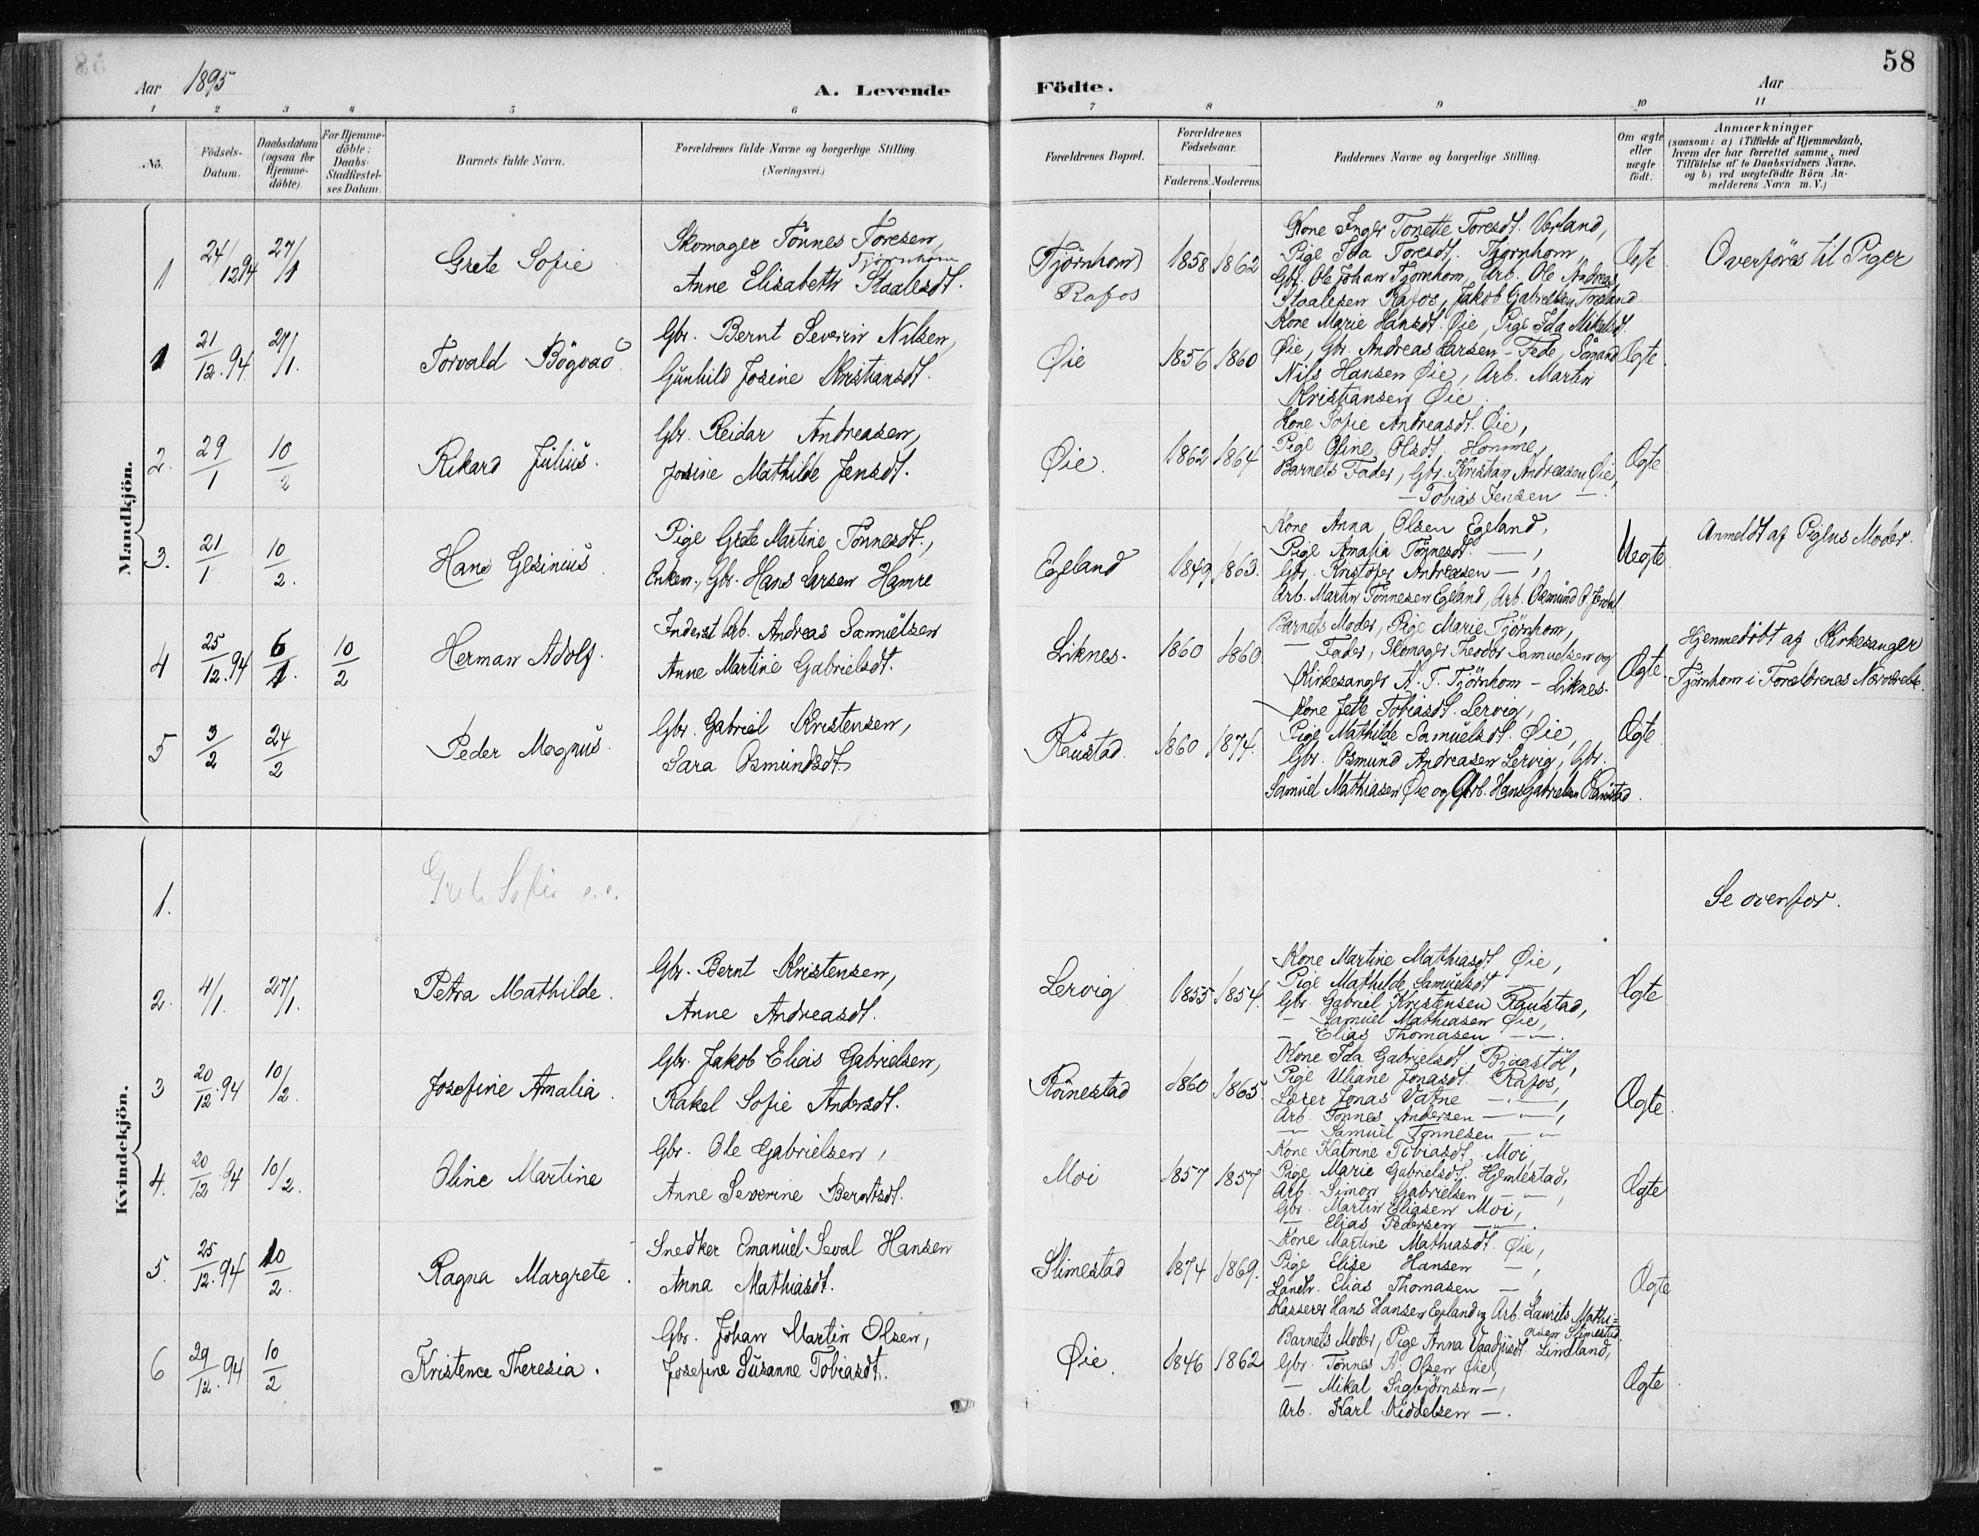 58
Aar 1895
A. Levende Födte.
Aar
1 2 3 4 5 6 7 8 9 10 11
No.
Födsels-Datum.
Daabsdatum (ogsaa for Hjemme-döbte).
For Hjemme-döbte: Daabs-Stadfæstel-ses Datum.
Barnets fulde Navn.
Forældrenes fulde Navne og borgerlige Stilling. (Næringsvei.)
Forældrenes Bopæl.
Forældrenes Födselsaar.
Faderens. Moderens.
Faddernes Navne og borgerlige Stilling.
Om ægte eller uægte födt.
Anmærkninger
(saasom: a) i Tilfælde af Hjemmedaab,
hvem der har forrettet samme, med
Tilföielse af to Daabsvidners Navne,
og b) ved uægtefödte Börn An-
melderens Navn m. V.)
Mandkjön.
1 24/12 94 27/1 Grete Sofie
Skomager Tönnes Toresen,
Tjørnhom
Anne Elisabeth Staalesdt.
Tjørnhom
Rafos
1858 1862
Kone Inger Tonette Toresdt. Verland,
Pige Ida Toresdt. Tjørnhom
Gbr. Ole Johan Tjørnhom, Arb. Ole Andreas
Staalesen Rafos, Jakob Gabrielsen Toreland
Ægte Overföres til Piger
1 21/12.94 27/1. Torvald Bögvad
Gbr. Bernt Severin Nilsen,
Gunhild Josine Kristiansdt.
Øie 1856 1860
Kone Marie Hansdt. Øie, Pige Ida Mikalsdt.
Øie, Gbr. Andreas Larsen - Fede, Sömand
Nils Hansen Øie, Arb. Martin
Kristiansen Øie.
Ægte
2. 29/1 10/2 Rikard Julius.
Gbr. Reidar Andreasen,
Josine Mathilde Jensdt.
Øie. 1862 1864
Kone Sofie Andreasdt. Øie,
Pige Oline Olsdt. Homme,
Barnets Fader, Gbr. Kristian Andreasen Øie,
— Tobias Jensen —.
Ægte
3. 21/1 10/2. Hans Gesinius
Pige Grete Martine Tönnesdt.,
Enkem., Gbr. Hans Larsen Hamre
Egeland 1849 1863.
Kone Anna Olsen Egeland,
Pige Amalia Tønnesdt. — ,
Gbr. Kristofer Andreasen — ,
Arb. Martin Tönnesen Egeland, Arb. Osmund
Uegte
Anmeldt af Pigens Moder.
4 25/12.94 6/1. 10/2 Herman Adolf.
Inderst Arb. Andreas Samuelsen
Anne Martine Gabrielsdt.
Liknes. 1860 1860
Barnets Moder, Pige Marie Tjörnhom,
— Fader, Skomager Theodor Samuelsen og
Kirkesanger A. T. Tjörnhom - Liknes.
Ægte.
Hjemmedöbt af Kirkesanger
Tjörnhom i Forældrenes Nærværelse.
5 3/2 24/2 Peder Magnus.
Gbr. Gabriel Kristensen,
Sara Osmundsdt.
Raustad. 1860 1874.
Kone Jette Tobiasdt. Lervig,
Pige Mathilde Samuelsdt. Øie,
Gbr. Osmund Andreasen Lervig, Gbr.
Samuel Mathiasen Øie og Gbr. Hans Gabrielsen Raustad.
Ægte
Kvindekjön.
1. Grete Sofie o.o.
Se ovenfor.
2. 4/1. 27/1. Petra Mathilde.
Gbr. Bernt Kristensen,
Anne Andreasdt.
Lervig 1855 1854.
Kone Martine Mathiasdt Øie,
Pige Mathilde Samuelsdt —
Gbr. Gabriel Kristensen Raustad,
— Samuel Mathiasen Øie,
— Elias Thomasen —.
Ægte
3 20/12.94 10/2. Josefine Amalia.
Gbr. Jakob Elias Gabrielsen,
Rakel Sofie Andersdt.
Röinestad 1860 1865.
Kone Ida Gabrielsdt. Bjaastöl,
Pige Uliane Jonasdt. Rafos,
Lærer Jonas Vatne — ,
Arb. Tønnes Andersen — ,
— Samuel Tønnesen —
Ægte.
4. 20/12 94 10/2. Oline Martine
Gbr. Ole Gabrielsen,
Anne Severine Berntsdt.
Moi 1857 1857
Kone Katrine Tobiasdt. Moi,
Pige Marie Gabrielsdt. Hjemlestad,
Arb. Simon Gabrielsen — ,
Gbr. Martin Eliasen Moi,
— Elias Pedersen —.
Ægte
5. 25/12.94 10/2. Ragna Margrete.
Snedker Emanuel Seval Hansen
Anna Mathiasdt.
Slimestad 1874 1869.
Kone Martine Mathiasdt. Øie,
Pige Elise Hansen — ,
Landh. Elias Thomasen — ,
Kasserer Hans Hansen Egeland og Arb. Laurits Mathi-
asen Slimestad.
Ægte
6 29/12.94 10/2 Kristence Theresia.
Gbr. Johan Martin Olsen,
Josefine Susanne Tobiasdt.
Øie. 1846 1862
Barnets Moder, Pige Anna Lindland,
Gbr. Tønnes A. Olsen Øie,
— Mikal Sigbjörnsen —,
Arb. Karl Kiddelsen —.
Ægte